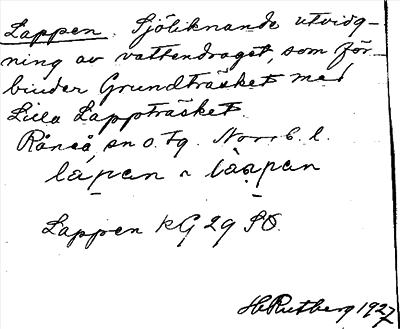 Lappen. Sjöliknande utvidg-
ning av vattendraget, som för-
binder Grundträsket med
Lilla Lappträsket.
Råneå sn o. tg. Norrb. l.
lápan ~ làapan
Lappen KG 29 SO.
H Rutberg 1927